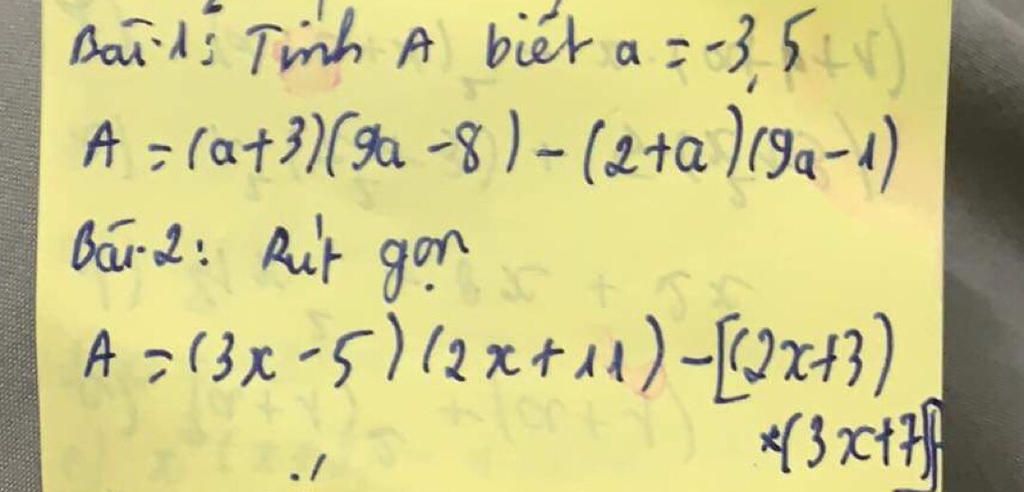 Bài 1: Tính A biết a = -3,5
A = (a+3)(9a-8) - (2+a)(9a-1)
Bài 2: Rút gọn
A = (3x-5)(2x+11) - [(2x+3)
*(3x+7)]